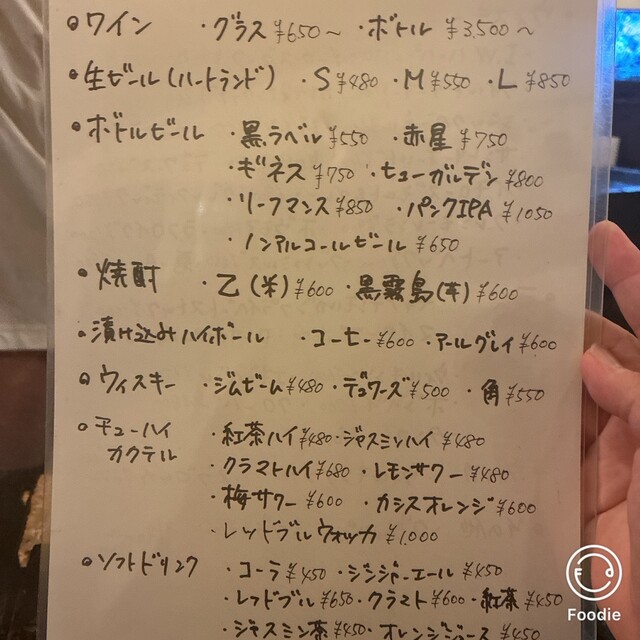 ・ワイン ・グラス ¥650～ ・ボトル ¥3,500～
・生ビール(ハートランド) ・S ¥480 ・M ¥550 ・L ¥850
・ボトルビール ・黒ラベル ¥550 ・赤星 ¥750
・ギネス ¥750 ・ヒューガルデン ¥800
・リーフマンス ¥850 ・パンクIPA ¥1050
・ノンアルコールビール ¥650
・焼酎 ・乙(米) ¥600 ・黒霧島(芋) ¥600
・漬け込みハイボール ・コーヒー ¥600 ・アールグレイ ¥600
・ウィスキー ・ジムビーム ¥480 ・デュワーズ ¥500 ・角 ¥550
・チューハイ ・紅茶ハイ ¥480 ・ジャスミンハイ ¥480
カクテル ・クラマトハイ ¥680 ・レモンサワー ¥480
・梅サワー ¥600 ・カシスオレンジ ¥600
・レッドブルウォッカ ¥1,000
・ソフトドリンク ・コーラ ¥450 ・ジンジャーエール ¥450
・レッドブル ¥650 ・クラマト ¥600 ・紅茶 ¥450
・ジャスミン茶 ¥450 ・オレンジジュース ¥450
Foodie